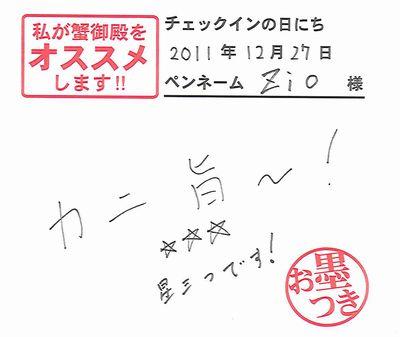 私が蟹御殿を
オススメ
します!!
チェックインの日にち
2011年12月27日
ペンネーム Zio 様
カニ旨~!
☆☆☆
星三つです!
お墨
つき